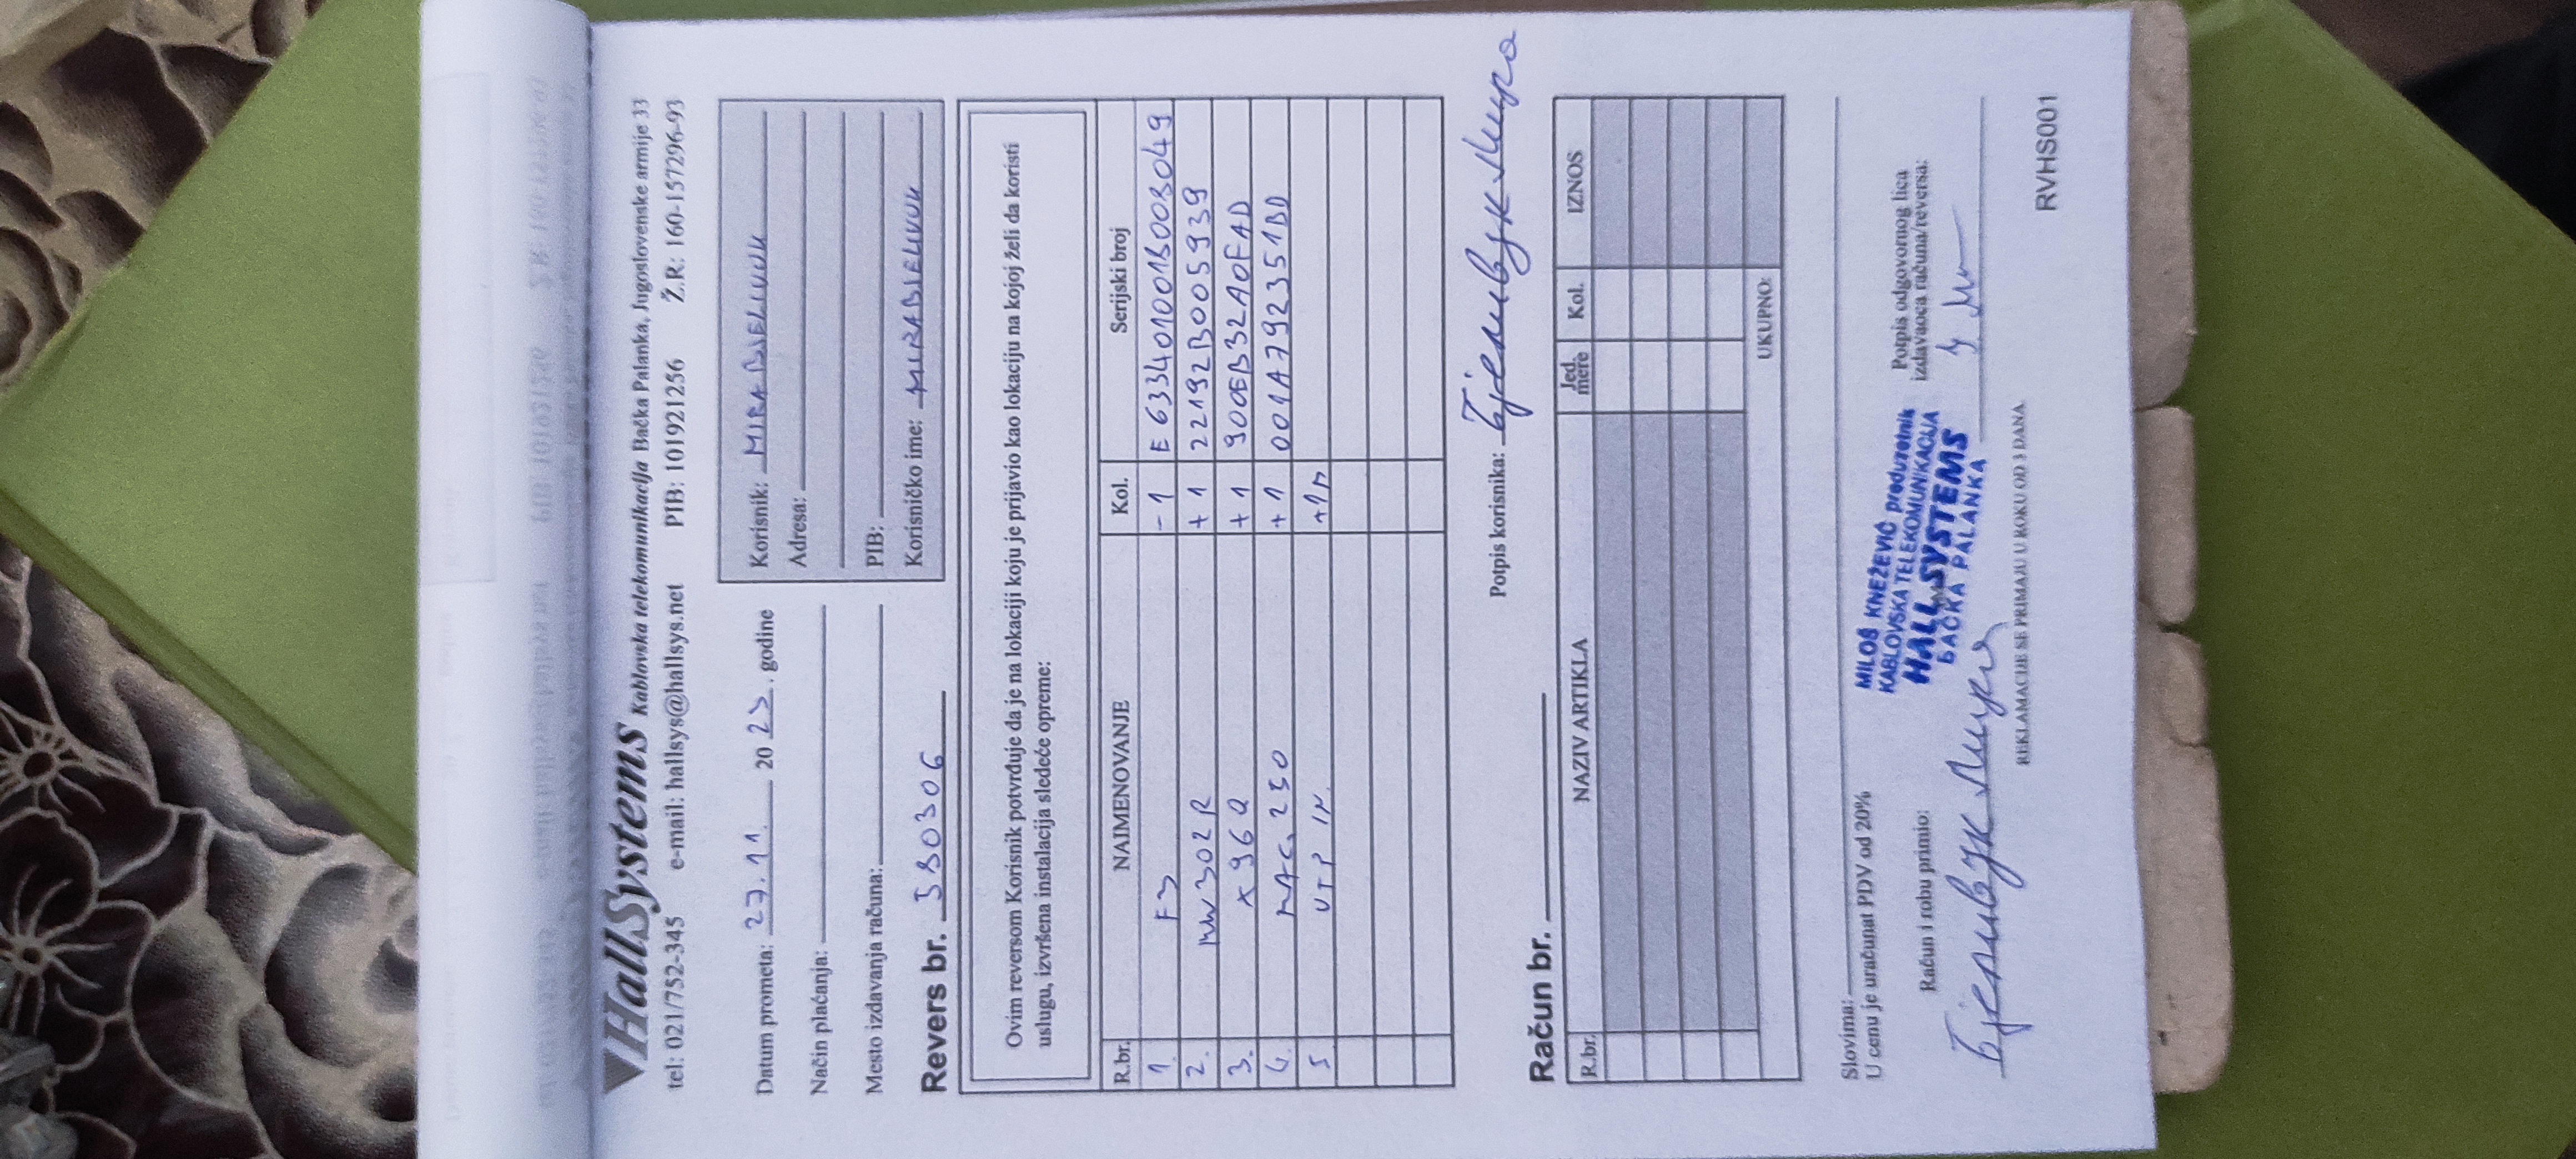 HallSystems Kablovska telekomunikacija Bačka Palanka, Jugoslovenske armije 33
tel: 021/752-345 e-mail: hallsys@hallsys.net PIB: 101921256 Ž.R: 160-157296-93
Datum prometa: 27.11. 2023. godine
Način plaćanja:
Mesto izdavanja računa:
Korisnik: MIRA BJELIVUK
Adresa:
PIB:
Korisničko ime: MIRABJELIVUK
Revers br.
Ovim reversom Korisnik potvrđuje da je na lokaciji koju je prijavio kao lokaciju na kojoj želi da koristi
uslugu, izvršena instalacija sledeće opreme:
R.br. NAIMENOVANJE Kol. Serijski broj
1. F3 -1 E633401001B003049
2. MW302R +1 22192B0005939
3. X96Q +1 900EB32A0FAD
4. MAG 250 +1 001A792351BD
5 UTP 1M. +1M
Potpis korisnika: Бјеливук Мира
Račun br.
R.br. NAZIV ARTIKLA Jed. mere Kol. IZNOS
UKUPNO:
Slovima:
U cenu je uračunat PDV od 20%
Račun i robu primio:
Бјеливук Мира
MILOŠ KNEŽEVIĆ preduzetnik
KABLOVSKA TELEKOMUNIKACIJA
HALL SYSTEMS
BAČKA PALANKA
Potpis odgovornog lica
izdavaoca računa/reversa:
REKLAMACIJE SE PRIMAJU U ROKU OD 3 DANA.
RVHS001